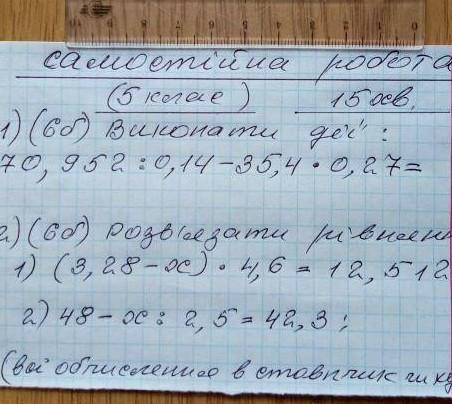 самостійна робота
(5 клас) 15 хв.
1) (6б) Виконати дії :
70,952 : 0,14 - 35,4 • 0,27 =
2) (6б) розв'язати рівнянн
1) (3,28 - x) • 4,6 = 12,512
2) 48 - x : 2,5 = 42,3 ;
(всі обчислення в стовпчик